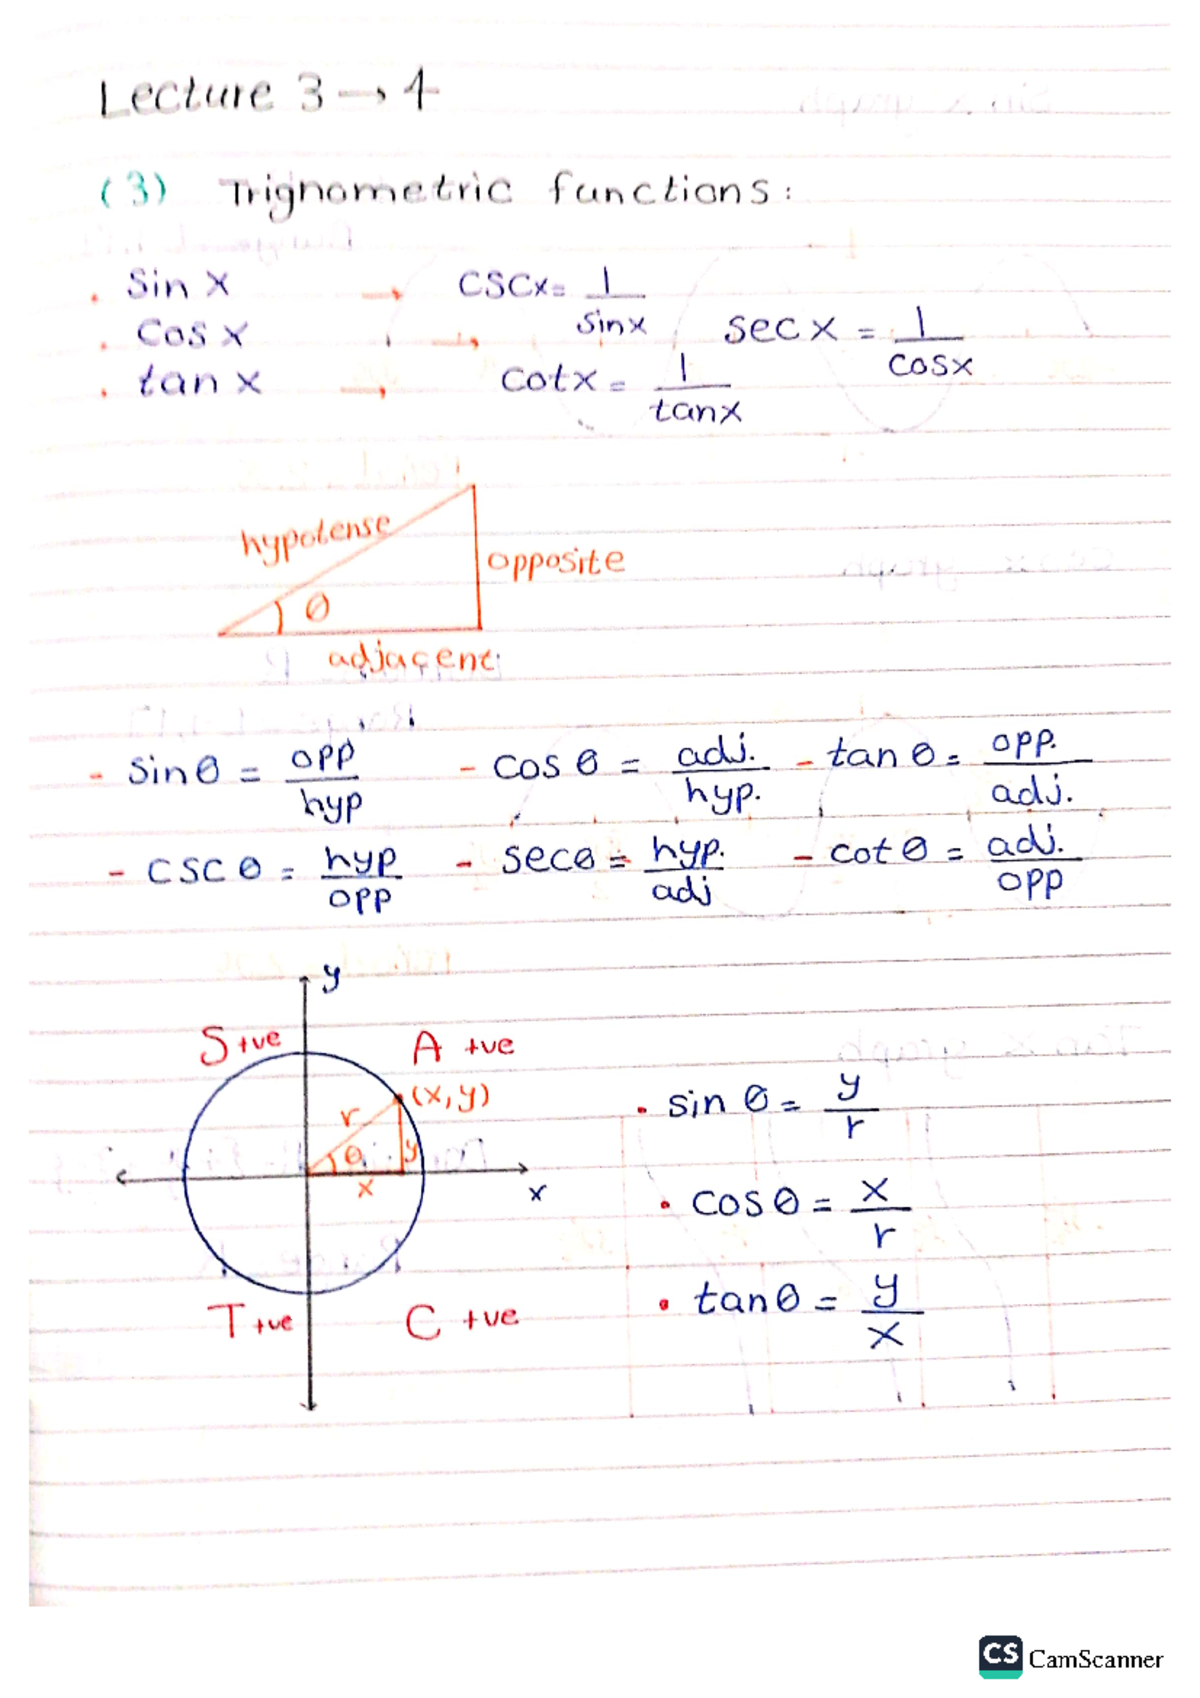 Lecture 3 → 4
(3) Trignometric functions:
. Sin x → CSCx = 1/sinx
. Cos x → sec x = 1/cosx
. tan x → Cotx = 1/tanx
hypotense
opposite
θ
adjacent
- Sinθ = opp/hyp - cos θ = adj./hyp. - tan θ = opp./adj.
- CSC θ = hyp/opp - secθ = hyp./adj - cot θ = adj./opp
y
S +ve A +ve
(x,y)
r
θ y
x
x
T +ve C +ve
• sin θ = y/r
• cos θ = x/r
• tan θ = y/x
CS CamScanner